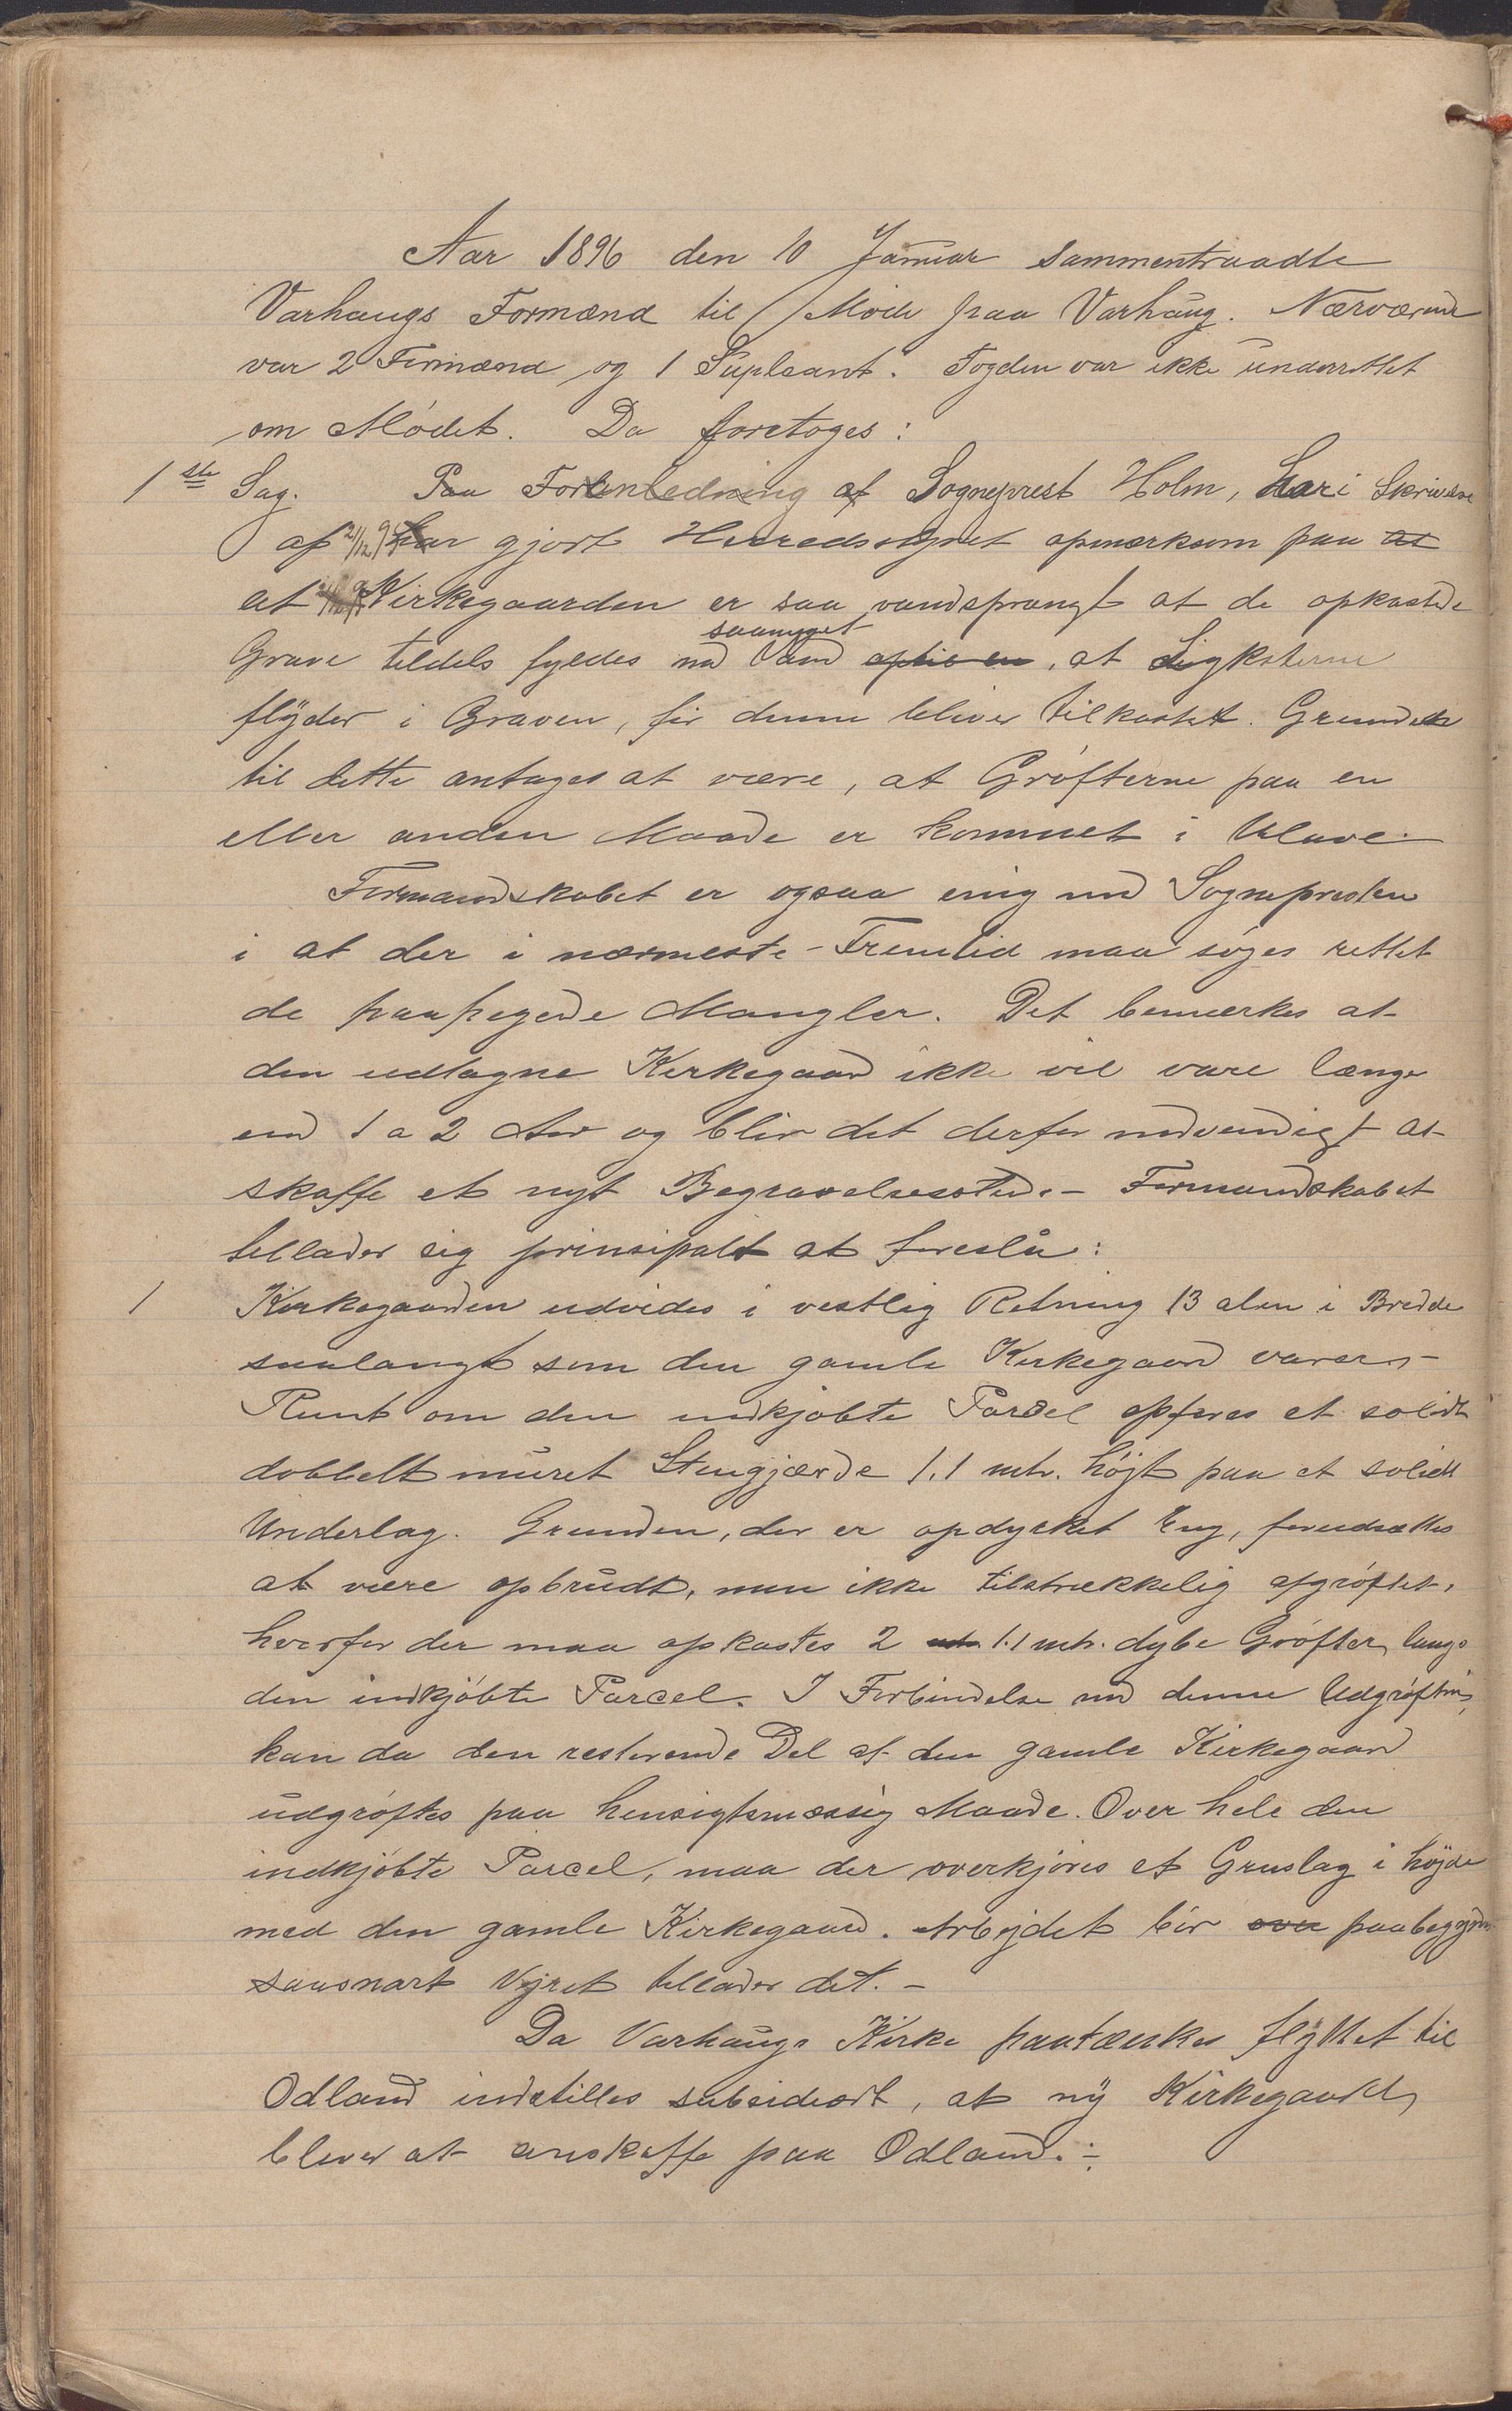 Aar 1896 den 10 Januar sammentraadte
Varhaugs Formænd til Møde paa Varhaug. Nærværende
var 2 Formænd og 1 Supleant. Fogden var ikke underrettet
om Mødet. Da foretoges:
1ste Sag. Paa Foranledning af Sogneprest Holm, har i Skrivelse
af 21/12 95 har gjort Herredsstyret opmærksom paa at
at Kirkegaarden er saa vandsprængt at de opkastede
saameget
Grave tildels fyldes med Vand, at Ligkisterne
flyder i Graven, før denne bliver tilkastet. Grunden
til dette antages at være, at Grøfterne paa en
eller anden Maade er kommet i Ulave.
Formandskabet er ogsaa enig med Sognepresten
i at der i nærmeste Fremtid maa søges rettet
de paapegede Mangler. Det bemærkes at
den udlagne Kirkegaard ikke vil vare længer
end 1 a 2 Aar og bliver det derfor nødvendigt at
skaffe et nyt Begravelsessted. - Formandskabet
tillader sig prinsipalt at foreslå:
1 Kirkegaarden udvides i vestlig Retning 13 alen i Bredde
saalangt som den gamle Kirkegaard varer. -
Runt om den indkjøbte Parcel opføres et solidt
dobbelt muret Stengjærde 1.1 mtr. højt paa et solidt
Underlag. Grunden, der er opdyrket Eng, forudsættes
at være opbrudt, men ikke tilstrækkelig afgrøftet,
hvorfor der maa opkastes 2 mtr 1.1 mtr. dybe Grøfter langs
den indkjøbte Parcel. I Forbindelse med denne Udgrøftning
kan da den resterende Del af den gamle Kirkegaard
udgrøftes paa hensigtsmæssig Maade. Over hele den
indkjøbte Parcel, maa der overkjøres et Gruslag i højde
med den gamle Kirkegaard. Arbejdet bør paabegyndes
saasnart Vejret tillader det. -
Da Varhaugs Kirke paatænkes flyttet til
Odland indstilles subsidiært, at ny Kirkegaard
bliver at anskaffe paa Odland. ÷